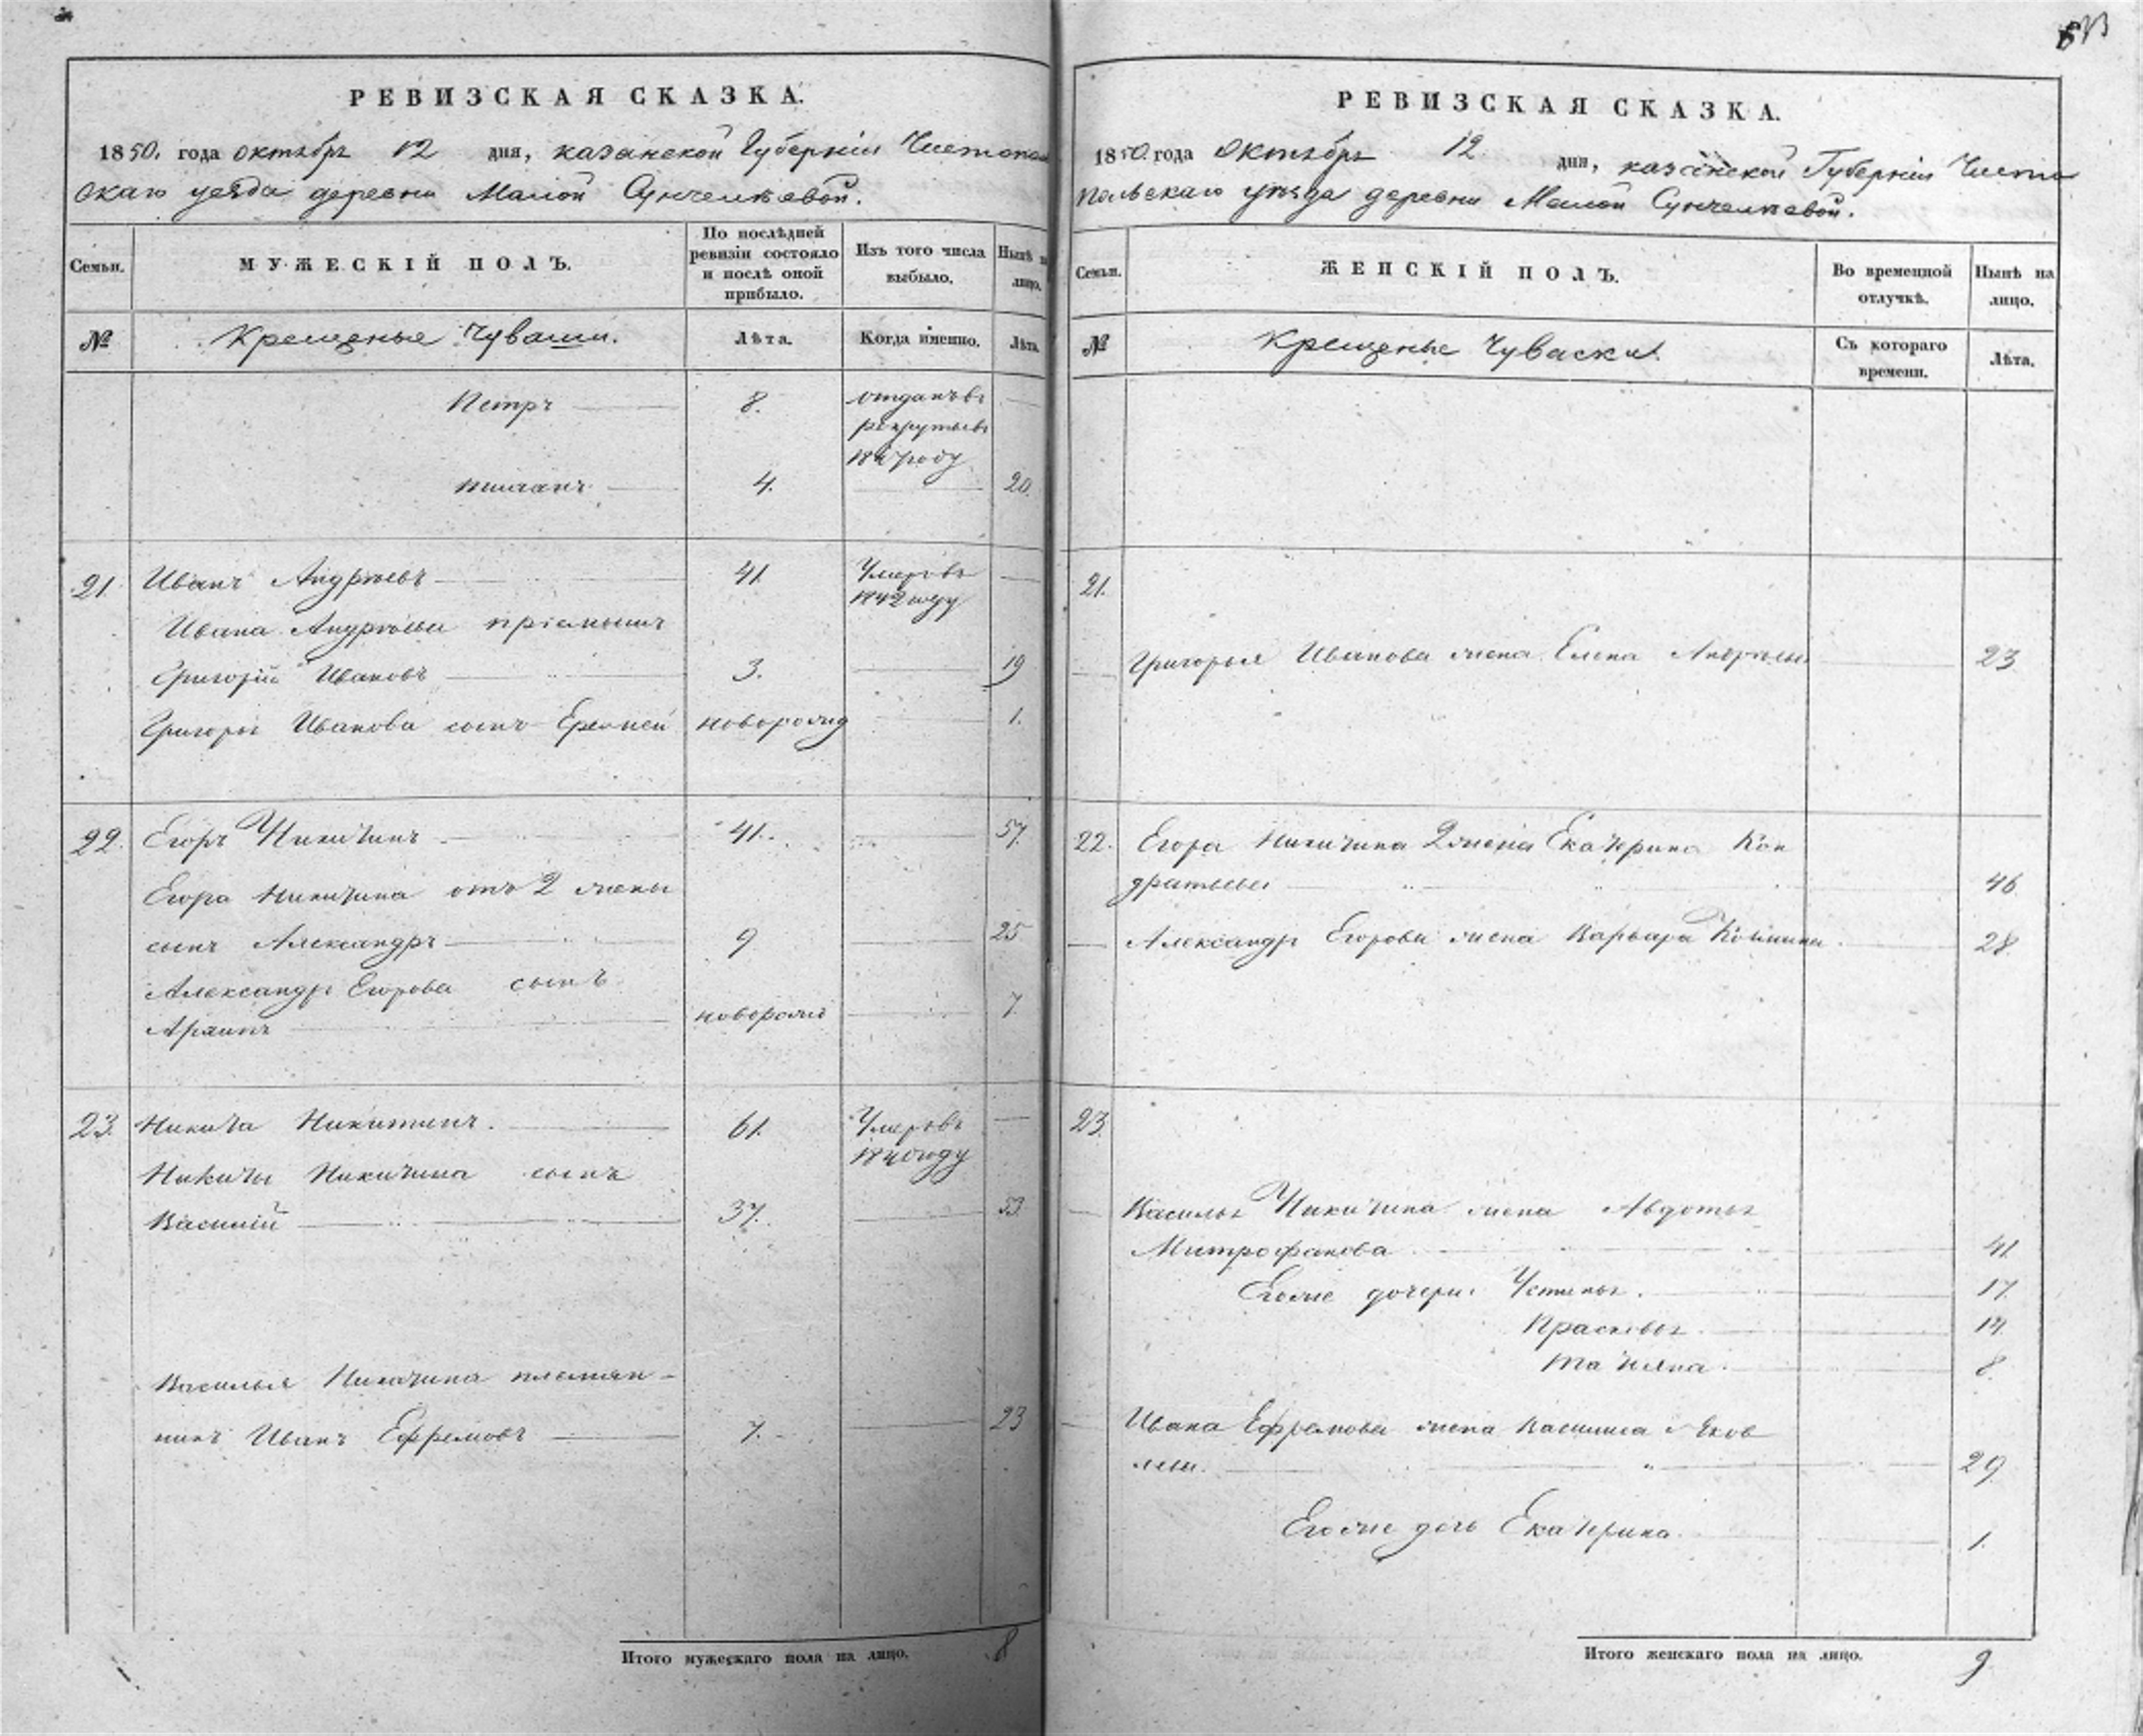 РЕВИЗСКАЯ СКАЗКА.
1850. года октября 12 дня, казанской Губернiи Чистопол
скаго уезда деревни Малой Сунчелѣевой.
Семьи. МУЖЕСКIЙ ПОЛЪ. По послѣдней ревизiи состояло и послѣ оной прибыло. Изъ того числа выбыло. Нынѣ на лицо.
№ Крещеные Чуваши. Лѣта. Когда именно. Лѣта.
Петръ 8. отданъ въ
рекруты въ
1847 году
4. 20.
21. Иванъ Андрѣевъ 41. Умеръ въ
1842 году
Ивана Андрѣева прiемышъ
Григорiй Ивановъ 3. 19
Григорья Иванова сынъ Еремей новорожд 1.
22. Егоръ Никитинъ 41. 57.
Егора Никитина отъ 2 жены
сынъ Александръ 9 25
Александра Егорова сынъ
новорожд 7
23. Никита Никитинъ. 61. Умеръ въ
1840 году
Никиты Никитина сынъ
Василiй 37. 53.
Василья Никитина племян-
никъ Иванъ Ефремовъ 7. 23
Итого мужескаго пола на лицо. 8
РЕВИЗСКАЯ СКАЗКА.
1850. года Октября 12 дня, казанской Губернiи Чисто
польскаго уѣзда деревни Малой Сунчелѣевой.
Семьи. ЖЕНСКIЙ ПОЛЪ. Во временной отлучкѣ. Нынѣ на лицо.
№ Крещеные Чуваски. Съ котораго времени. Лѣта.
21.
Григорья Иванова жена Елена Андрѣева 23
22. Егора Никитина 2 жена Екатерина Кон
дратьева 46
Александра Егорова жена Варвара 28
23.
Василья Никитина жена Авдотья
Митрофанова 41
Его же дочери Устинья. 17.
Прасковья 14.
Татьяна. 8.
Ивана Ефремова жена Василиса Яков
лева. 29.
Его же дочь Екатерина. 1.
Итого женскаго пола на лицо. 9